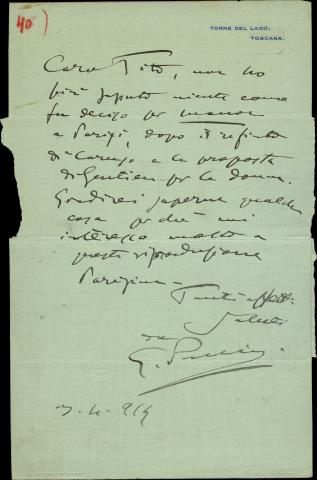 40)
TORRE DEL LAGO,
TOSCANA.
Caro Tito, non ho
più saputo niente come
fu deciso per manon
a Parigi, dopo il rifiuto
di Caruso e la proposta
di Gentien per la donna.
Gradirei saperne qualche
cosa perchè mi
interesso molto a
questa riproduzione
Parigina -
Tanti affett.
saluti
da
G. Puccini